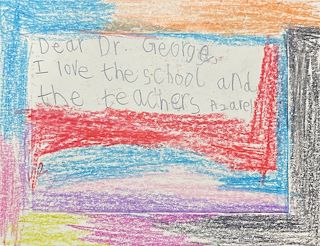 Dear Dr. George,
I love the school and
the teachers Azarel